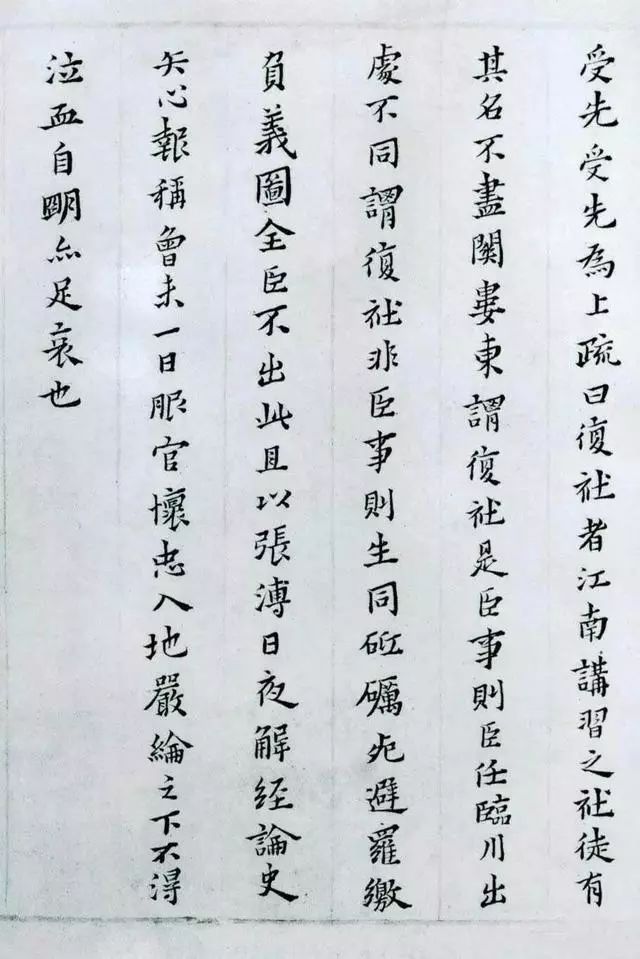 受先受先為上疏曰復社者江南講習之社徒有
其名不盡関婁東謂復社是臣事則臣任臨川出
處不同謂復社非臣事則生同砥礪死避羅繳
負義圖全臣不出此且以張溥日夜解經論史
矢心報稱曾未一日服官懷忠入地嚴綸之下不得
泣血自明亦足哀也